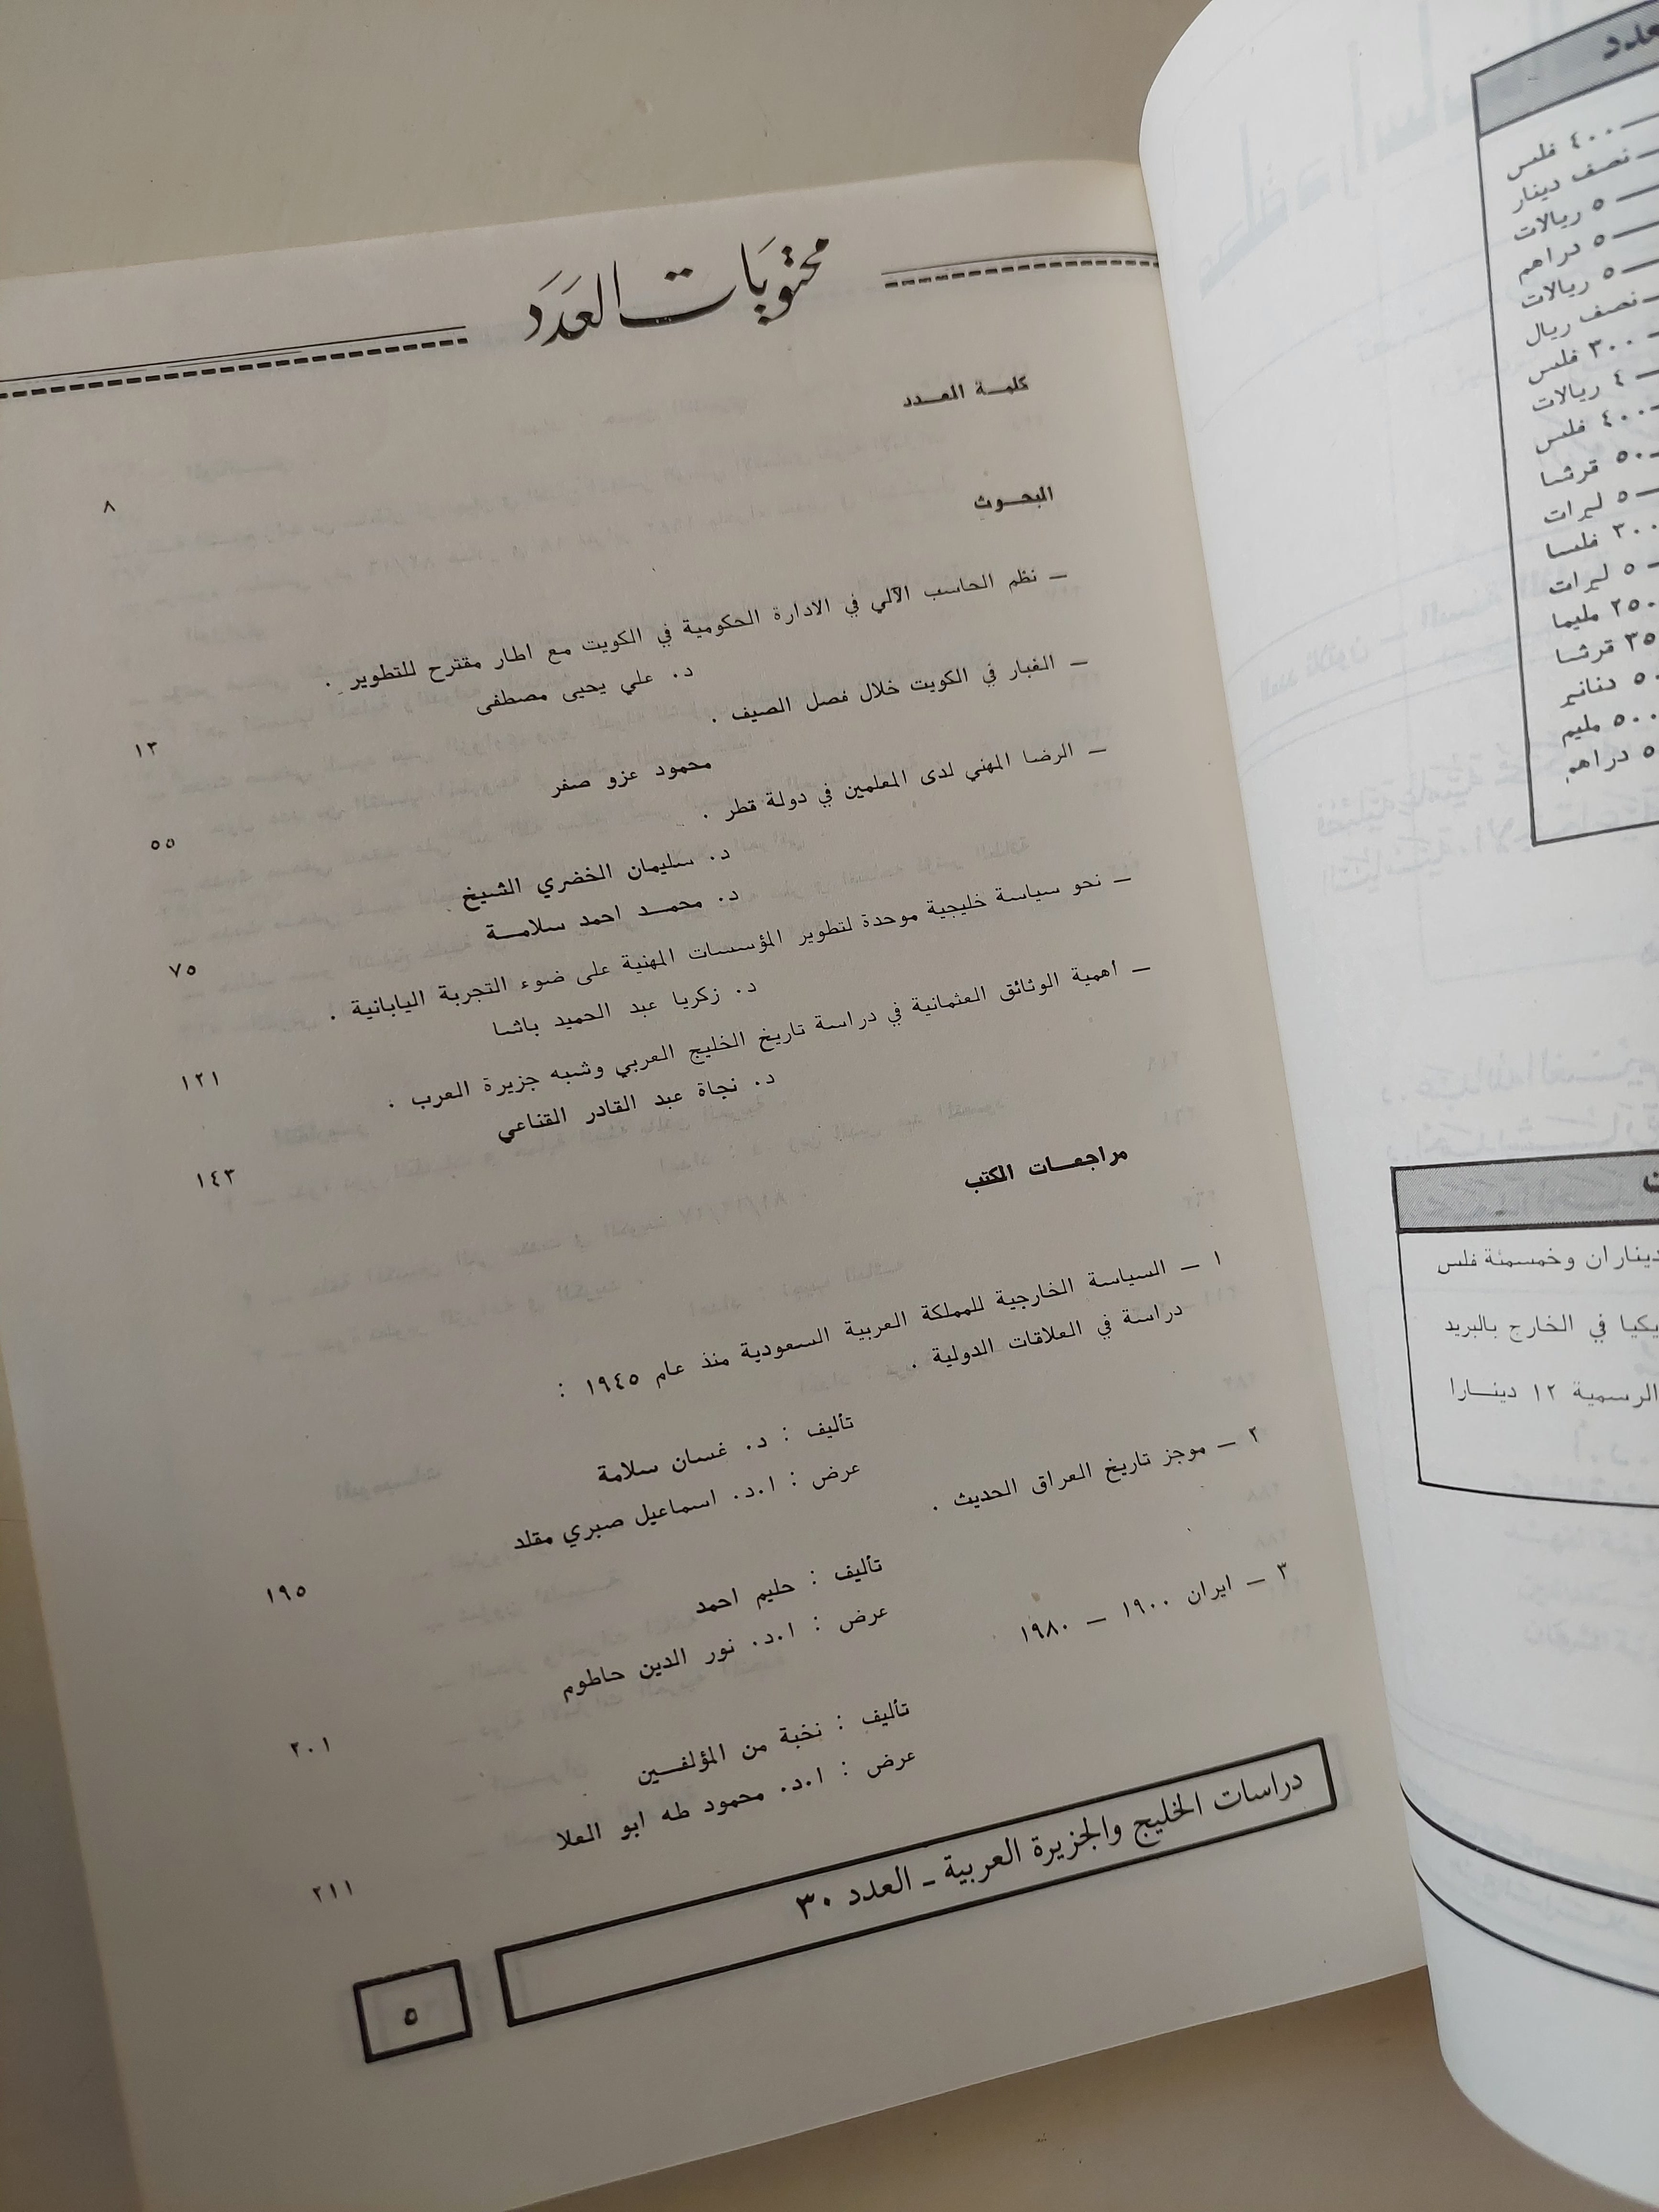 محتويات العدد
كلمة العدد
٨
البحوث
— نظم الحاسب الآلي في الادارة الحكومية في الكويت مع اطار مقترح للتطوير .
د. علي يحيى مصطفى
١٣
— الغبار في الكويت خلال فصل الصيف .
محمود عزو صفر
٥٥
— الرضا المهني لدى المعلمين في دولة قطر .
د. سليمان الخضري الشيخ
د. محمد احمد سلامة
٧٥
— نحو سياسة خليجية موحدة لتطوير المؤسسات المهنية على ضوء التجربة اليابانية .
د. زكريا عبد الحميد باشا
١٢١
— أهمية الوثائق العثمانية في دراسة تاريخ الخليج العربي وشبه جزيرة العرب .
د. نجاة عبد القادر القناعي
١٤٣
مراجعات الكتب
١ — السياسة الخارجية للمملكة العربية السعودية منذ عام ١٩٤٥ :
دراسة في العلاقات الدولية .
تأليف : د. غسان سلامة
عرض : ا.د. اسماعيل صبري مقلد
١٩٥
٢ — موجز تاريخ العراق الحديث .
تأليف : حليم احمد
عرض : ا.د. نور الدين حاطوم
٢٠١
٣ — ايران ١٩٠٠ — ١٩٨٠
تأليف : نخبة من المؤلفين
عرض : ا.د. محمود طه ابو العلا
٢١١
دراسات الخليج والجزيرة العربية - العدد ٣٠
٥
٤٠٠ فلس
نصف دينار
٥ ريالات
٥ دراهم
٥ ريالات
نصف ريال
٣٠٠ فلس
٤ ريالات
٤٠٠ فلس
٥٠ قرشا
٥ ليرات
٣٠٠ فلسا
٥ ليرات
٢٥٠ مليما
٣٥ قرشا
دنانير
٥٠٠ مليم
٥ دراهم
ديناران وخمسمئة فلس
في الخارج بالبريد
الرسمية ١٢ دينارا